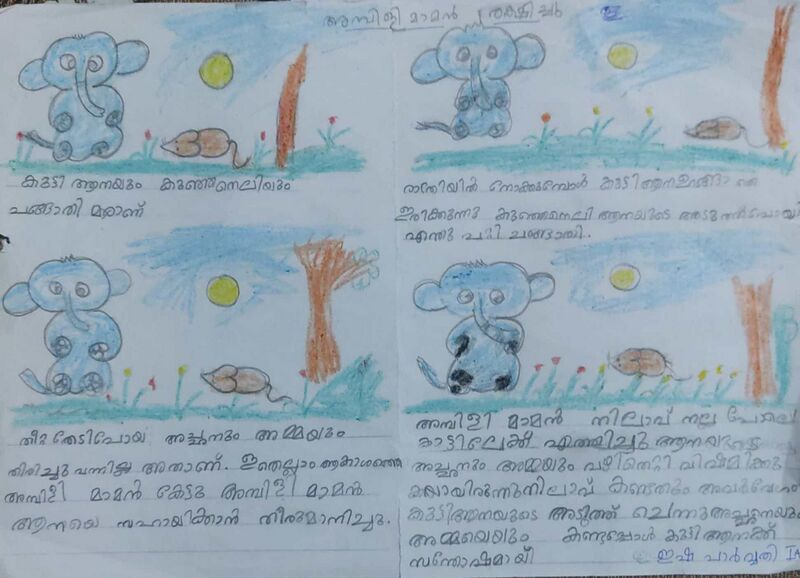 അമ്പിളി മാമൻ രക്ഷിച്ചു
കുട്ടി ആനയും കുഞ്ഞനെലിയും
ചങ്ങാതി മാരാണ്
രാത്രിയിൽ നോക്കുമ്പോൾ കുട്ടി ആന ഉറങ്ങാതെ
ഇരിക്കുന്നു കുഞ്ഞനെലി ആനയുടെ അടുത്ത് പോയി
എന്തു പറ്റി ചങ്ങാതി..
തീറ്റ തേടിപോയ അച്ഛനും അമ്മയും
തിരിച്ചു വന്നില്ല അതാണ്. ഇതെല്ലാം ആകാശത്തെ
അമ്പിളി മാമൻ കേട്ടു അമ്പിളി മാമൻ
ആനയെ സഹായിക്കാൻ തീരുമാനിച്ചു.
അമ്പിളി മാമൻ നിലാവ് നല്ല പോലെ
കാട്ടിലേക്ക് എത്തിച്ചു ആനയുടെ
അച്ഛനും അമ്മയും വഴിതെറ്റി വിഷമിക്കു
കയായിരുന്നു നിലാവ് കണ്ടതും അവർ വേഗം
കുട്ടിആനയുടെ അടുത്ത് ചെന്നു അച്ഛനെയും
അമ്മയെയും കണ്ടപ്പോൾ കുട്ടി ആനക്ക്
സന്തോഷമായി ഇഷ പാർവ്വതി IA